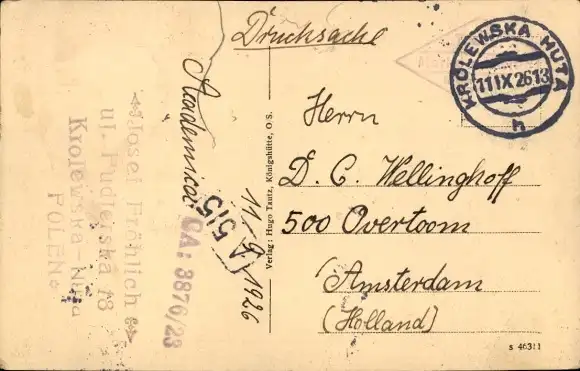 Drucksache
KRÓLEWSKA HUTA
11 IX 26 13
h
Herrn
D. C. Wellinghoff
500 Overtoom
Amsterdam
(Holland)
Verlag: Hugo Tautz, Königshütte, O.S.
S 46311
11-9 1926
A 515
CA: 3876/23
Josef Fröhlich
ul. Pudlerska 18
Krolewska-Huta
POLEN